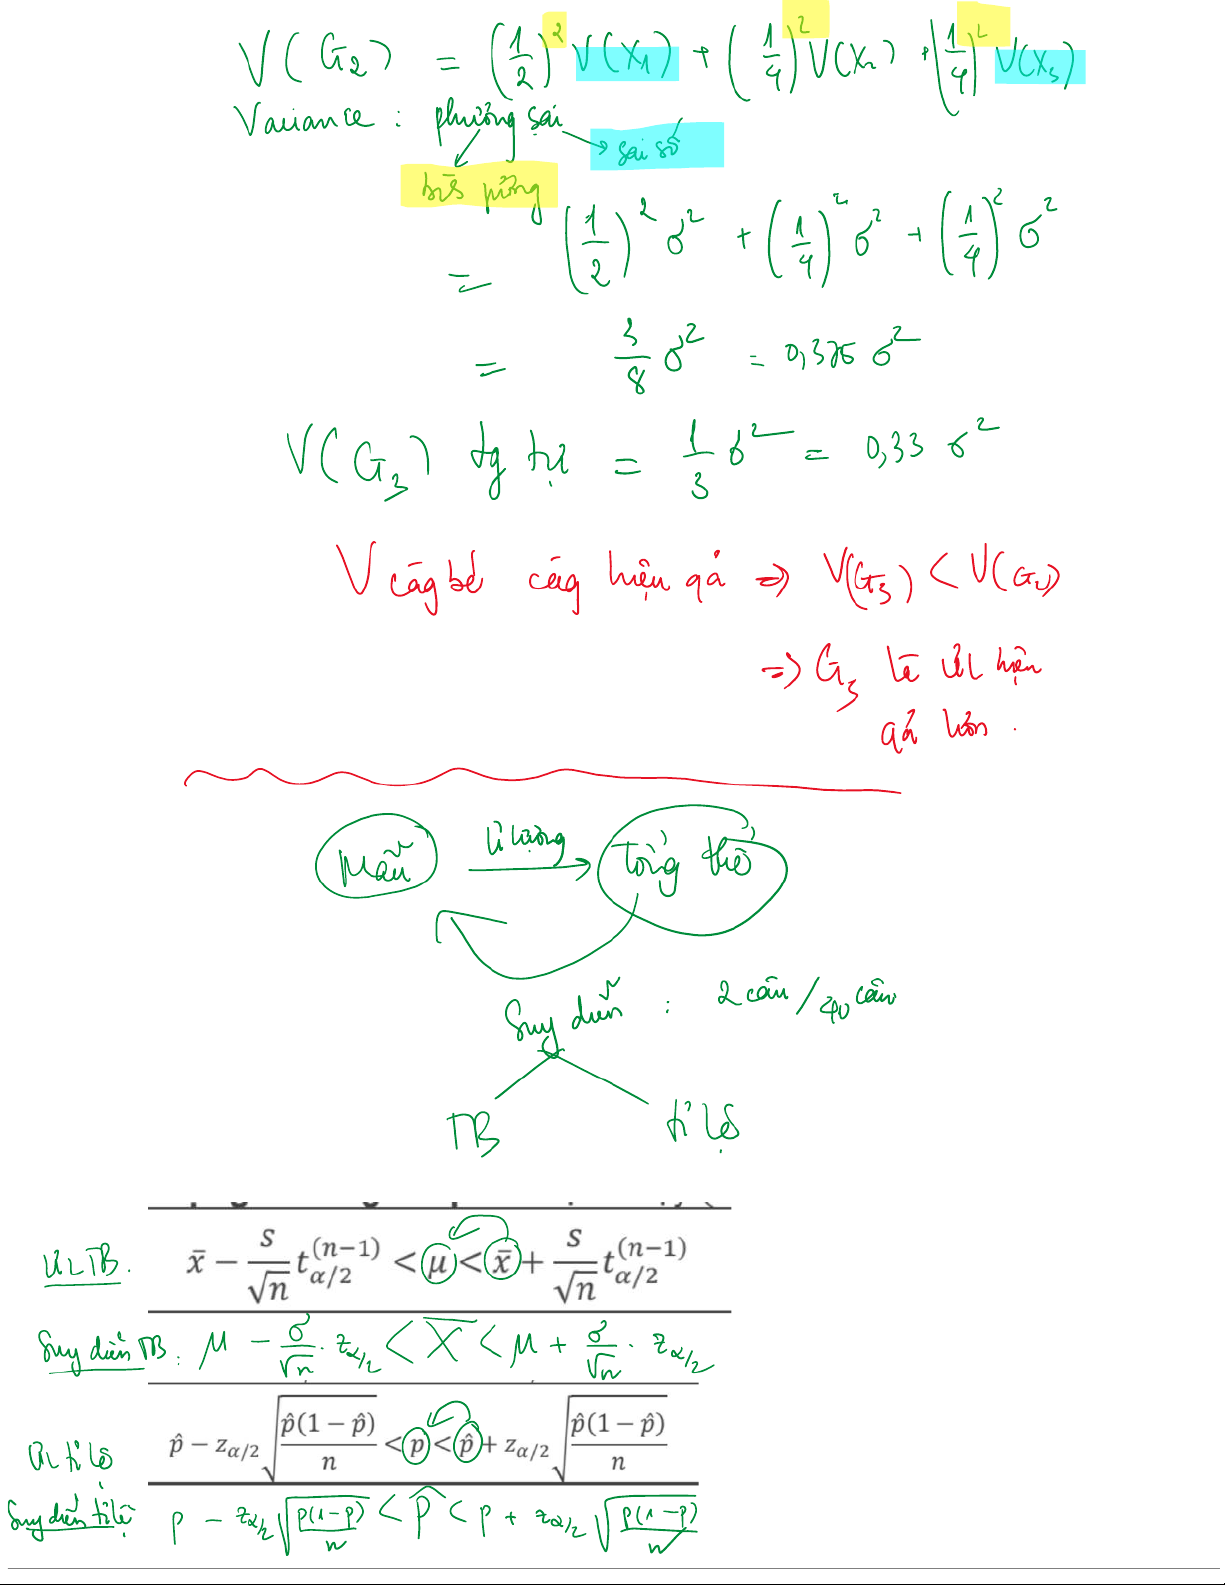 V(G₂) = (1/2)² V(X₁) + (1/4)² V(X₂) + (1/4)² V(X₃)
Variance : phương sai
sai số
bình phương
= (1/2)² σ² + (1/4)² σ² + (1/4)² σ²
= 3/8 σ² = 0,375 σ²
V(G₃) tg tự = 1/3 σ² = 0,33 σ²
V càg bé càg hiệu qả ⇒ V(G₃) < V(G₂)
⇒ G₃ là ƯL hiệu
qả hơn .
Mẫu Ư lượng Tổng thể
Suy diễn : 2 câu / 40 câu
TB tỉ lệ
ƯLTB. x̄ − s/√n t_{α/2}^{(n−1)} < μ < x̄ + s/√n t_{α/2}^{(n−1)}
Suy diễn TB : μ − σ/√n . z_{α/2} < X̄ < μ + σ/√n . z_{α/2}
ƯL tỉ lệ p̂ − z_{α/2} √(p̂(1 − p̂)/n) < p < p̂ + z_{α/2} √(p̂(1 − p̂)/n)
Suy diễn tỉ lệ p − z_{α/2} √(p(1−p)/n) < p̂ < p + z_{α/2} √(p(1−p)/n)